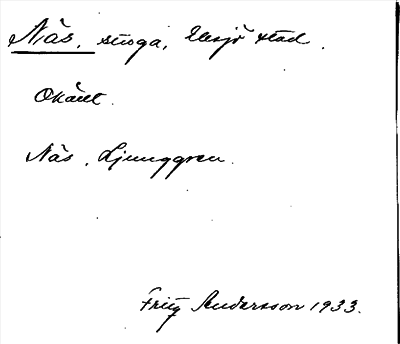 Näs, stuga, Eksjö stad.
Okänt.
Näs. Ljunggren.
Fritz Andersson 1933.